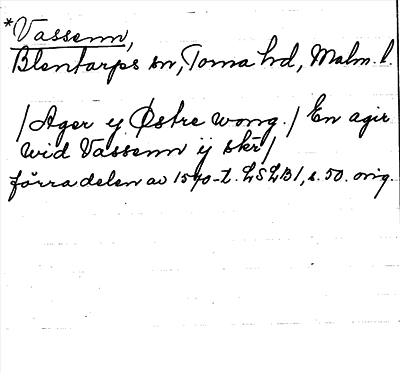 *Vassenn,
Blentarps sn, Torna hd, Malm. l.
/Ager ij Østre wong./ En agir
wid Vassenn ij skr/
förra delen av 1570-t. LSLB1, s. 50. orig.